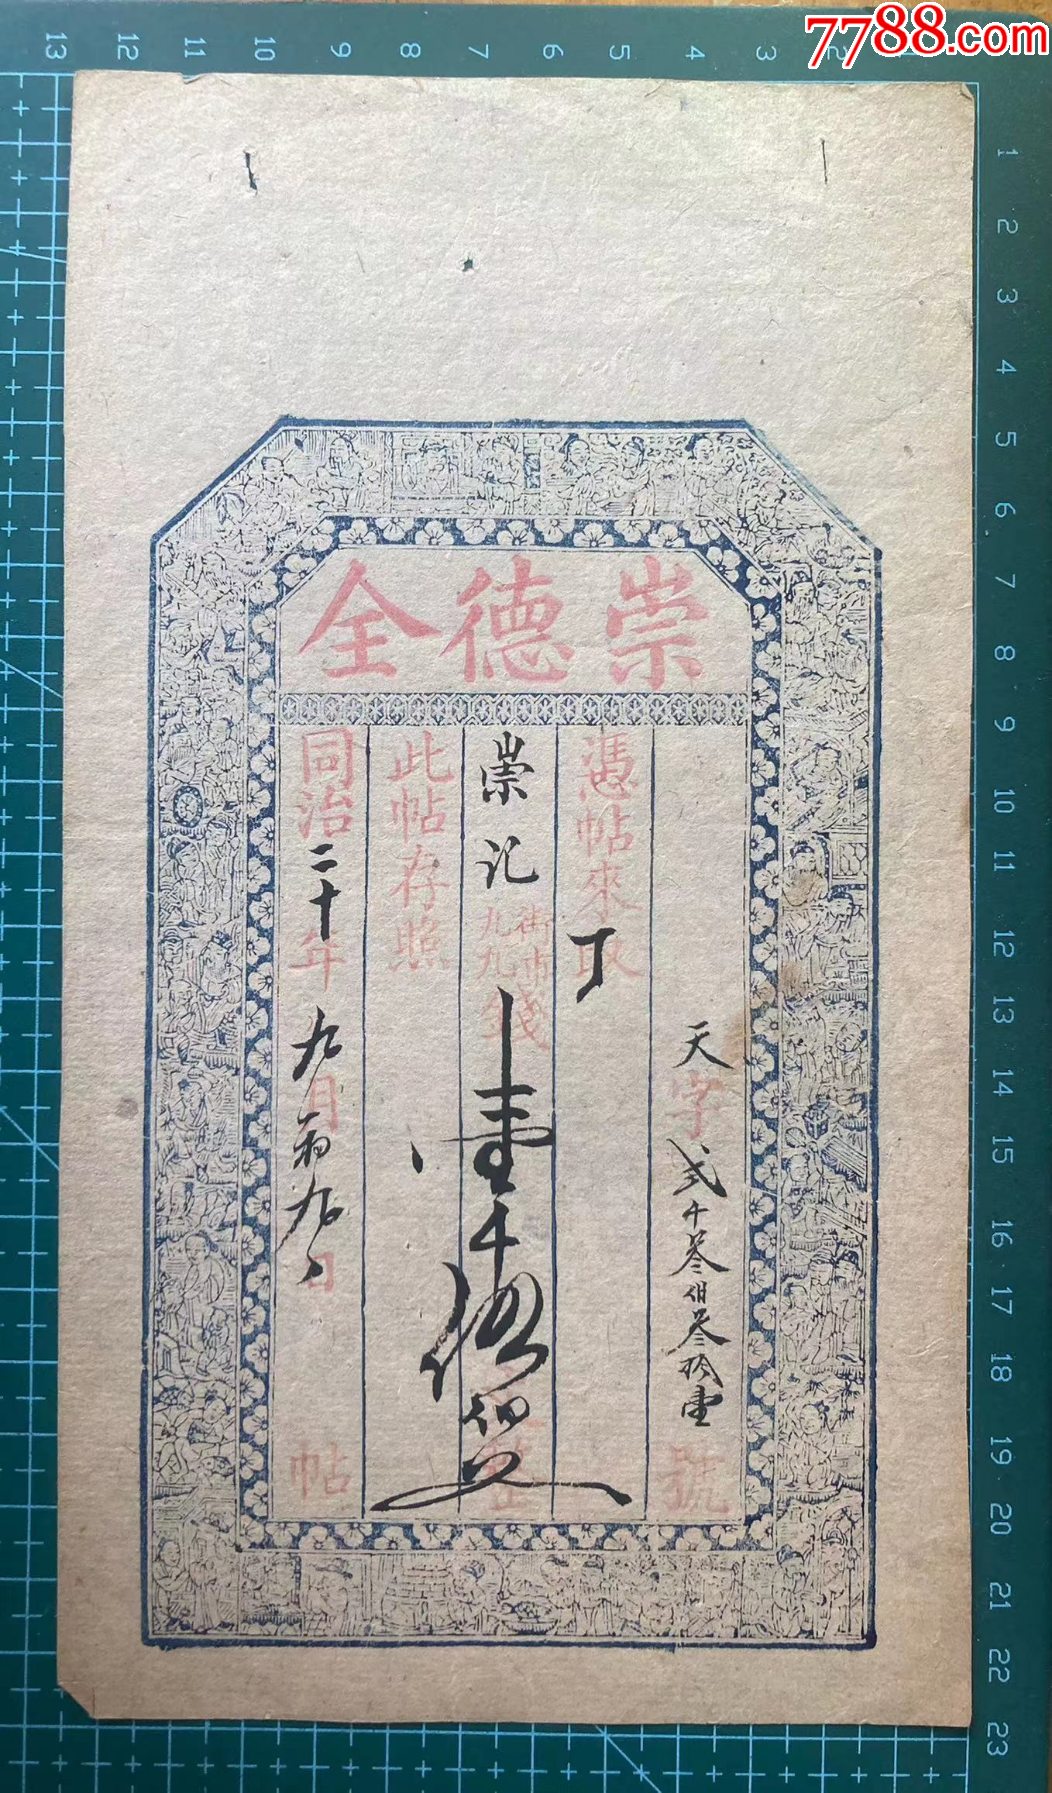 7788.com
13 12 11 10 9 8 7 6 5 4 3 2
1
2
3
4
5
6
7
8
9
10
11
12
13
14
15
16
17
18
19
20
21
22
23
崇德全
天字弍千叁佰叁拾壹號
憑帖來取
崇記街市九九錢壹千伍佰文整
此帖存照
同治二十年九月初九日帖